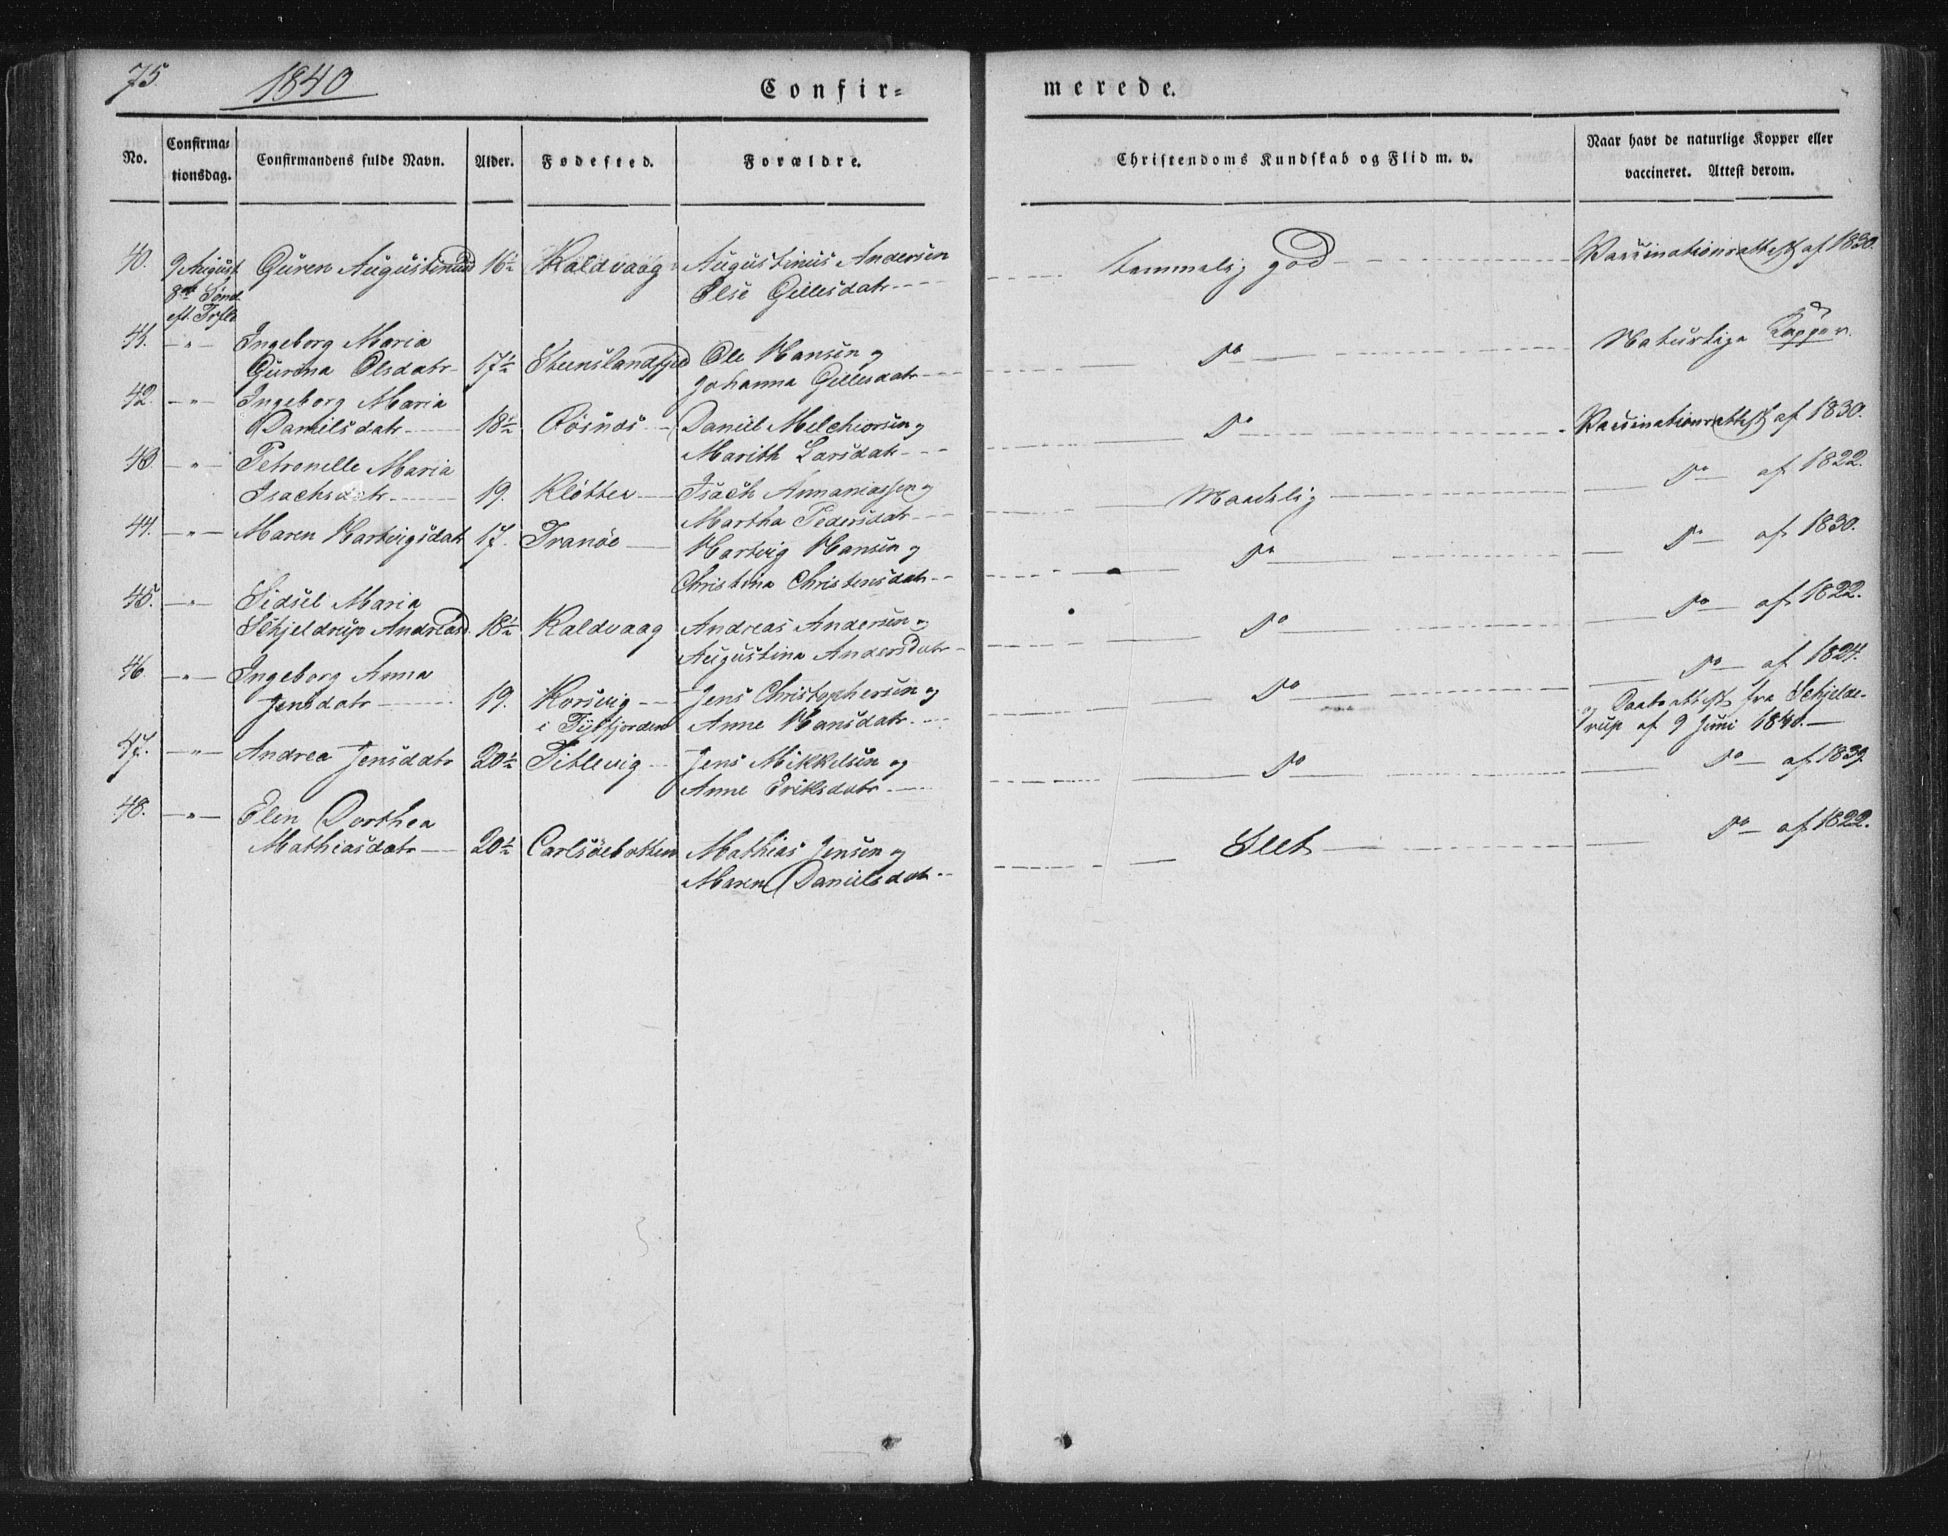 75.
1840
Confir=
merede.
No.
Confirma=
tionsdag.
Confirmandens fulde Navn.
Alder.
Fødested.
Forældre.
Christendoms Kundskab og Flid m. v.
Naar havt de naturlige Kopper eller
vaccineret. Attest derom.
40. 9 August Guren Augustinusd 16½ Kaldvaag Augustinus Andersen temmelig god Vaccinationsattest af 1830.
8de Sønd. Else Gillesdatr
eft. Trft.
41. -"- Ingeborg Maria
Gurina Olsdatr 17½ Steenslandsfjd Ole Hansen og Do Naturlige Kopper.
Johanna Gillesdatr
42. -"- Ingeborg Maria
Danielsdatr 18½ Røsnes Daniel Melchiorsen og Do Vaccinationsattest af 1830.
Marith Larsdatr
43 -"- Petronelle Maria
Isachsdatr 19. Kløtten Isach Annaniassen og Maadelig Do af 1822.
Martha Pedersdatr
44. -"- Maren Hartvigsdatr 17. Tranøe Hartvig Hansen og Do Do af 1830.
Christina Christensdatr
45. -"- Sidsel Maria
Schjeldrup Andreasd. 18½ Kaldvaag Andreas Andersen og Do Do af 1822.
Augustina Andersdatr
46 -"- Ingeborg Anna
Jensdatr 19. Korsvig Jens Christophersen og Do Do af 1824.
i Tysfjorden Anne Hansdatr. og Daabsattest fra Schjelde-
rup af 9 Juni 1840.
47. -"- Andrea Jensdatr 20½ Titlevig Jens Mikkelsen og Do Do af 1839.
Anne Eriksdatr.
48. -"- Elen Dorthea
Mathiasdatr 20½ Carlsøebotten Mathias Jensen og Slet Do af 1822.
Maren Danielsdatr.